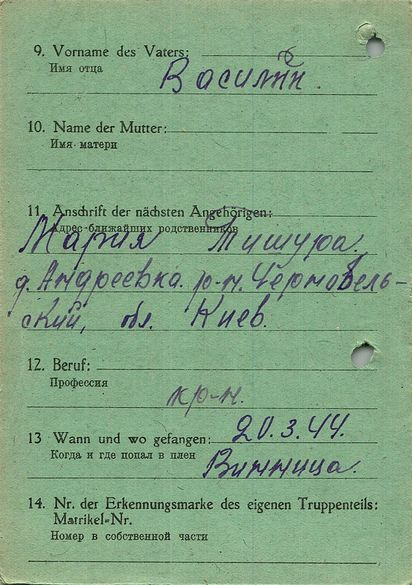 9. Vorname des Vaters:
Имя отца
Василий.
10. Name der Mutter:
Имя матери
11. Anschrift der nächsten Angehörigen:
Адрес ближайших родственников
Мария Тишура.
д. Андреевка. р-н. Чернобель-
ский, обл. Киев.
12. Beruf:
Профессия
кр-н.
13 Wann und wo gefangen: 20.3.44.
Когда и где попал в плен
Винница.
14. Nr. der Erkennungsmarke des eigenen Truppenteils:
Matrikel-Nr.
Номер в собственной части